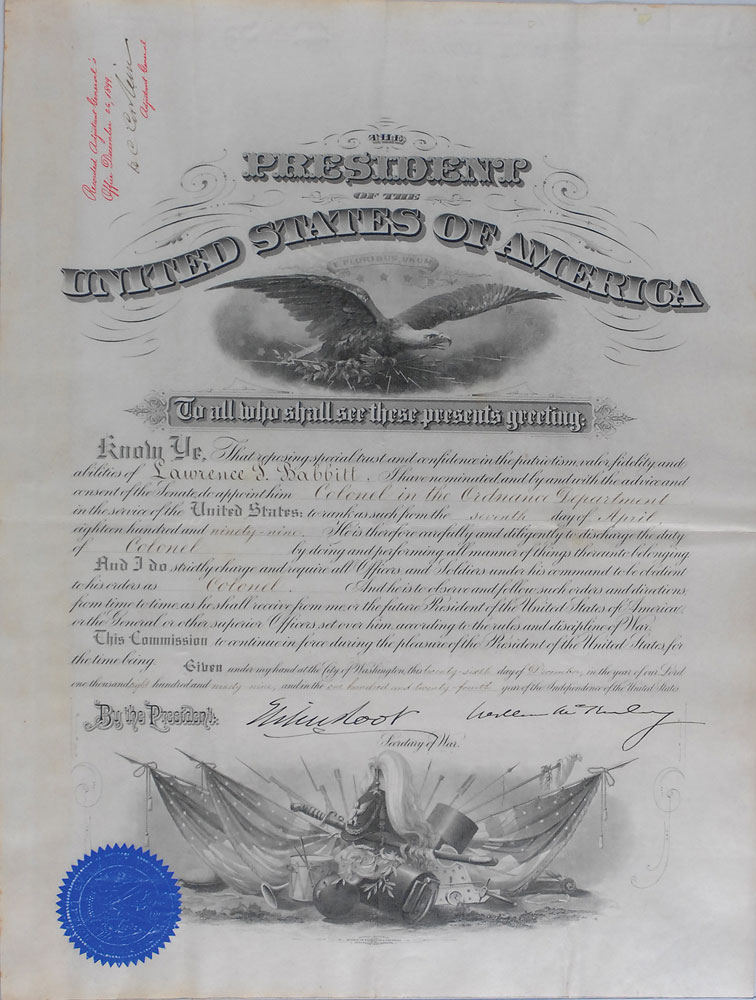 Recorded Adjutant General's
Office December 26, 1899
Adjutant General
THE
PRESIDENT
OF THE
UNITED STATES OF AMERICA
E PLURIBUS UNUM
To all who shall see these presents greeting:
Know Ye, That reposing special trust and confidence in the patriotism, valor, fidelity and
abilities of Lawrence S. Babbitt, I have nominated and by and with the advice and
consent of the Senate, do appoint him Colonel in the Ordnance Department
in the service of the United States: to rank as such from the seventh day of April
eighteen hundred and ninety-nine. He is therefore carefully and diligently to discharge the duty
of Colonel by doing and performing all manner of things thereunto belonging.
And I do strictly charge and require all Officers and Soldiers under his command to be obedient
to his orders as Colonel. And he is to observe and follow such orders and directions
from time to time, as he shall receive from me or the future President of the United States of America
or the General or other superior Officers set over him, according to the rules and discipline of War.
This Commission to continue in force during the pleasure of the President of the United States, for
the time being. Given under my hand at the City of Washington, this twenty-sixth day of December, in the year of our Lord
one thousand eight hundred and ninety-nine, and in the one hundred and twenty-fourth year of the Independence of the United States.
By the President:
Elihu Root William McKinley
Secretary of War.